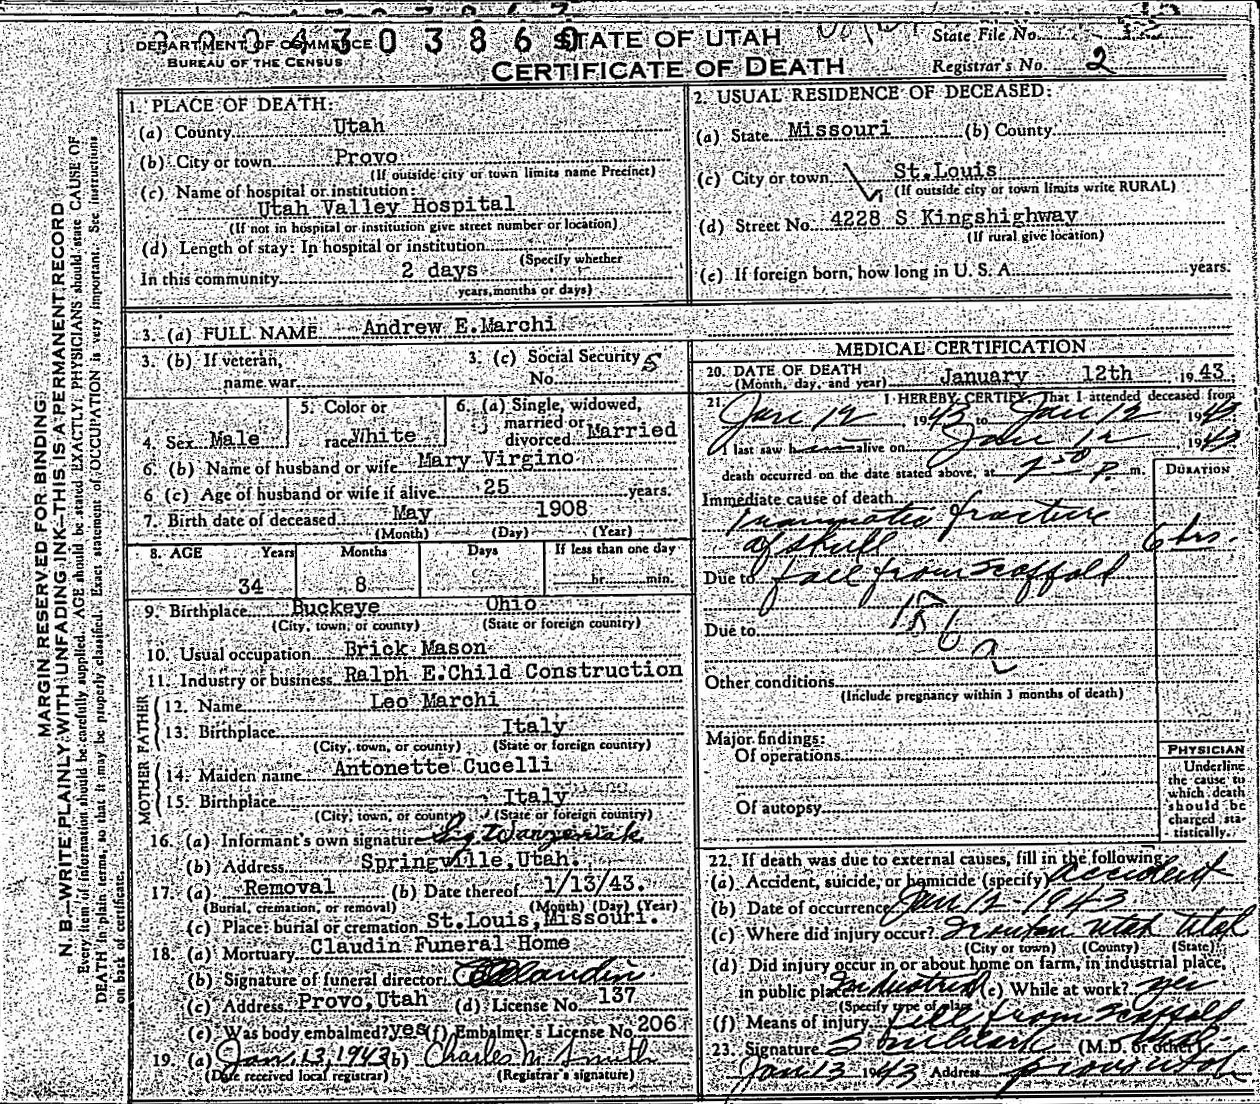 DEPARTMENT OF COMMERCE
BUREAU OF THE CENSUS
STATE OF UTAH
CERTIFICATE OF DEATH
State File No.
Registrar's No. 2
MARGIN RESERVED FOR BINDING
N. B.—WRITE PLAINLY, WITH UNFADING INK—THIS IS A PERMANENT RECORD
Every item of information should be carefully supplied. AGE should be stated EXACTLY. PHYSICIANS should state CAUSE OF
DEATH in plain terms, so that it may be properly classified. Exact statement of OCCUPATION is very important. See instructions
on back of certificate.
1. PLACE OF DEATH:
(a) County Utah
(b) City or town Provo
(If outside city or town limits name Precinct)
(c) Name of hospital or institution:
Utah Valley Hospital
(If not in hospital or institution give street number or location)
(d) Length of stay: In hospital or institution
(Specify whether
In this community 2 days
years, months or days)
2. USUAL RESIDENCE OF DECEASED:
(a) State Missouri (b) County
(c) City or town St.Louis
(If outside city or town limits write RURAL)
(d) Street No. 4228 S Kingshighway
(If rural give location)
(e) If foreign born, how long in U. S. A. years.
3. (a) FULL NAME Andrew E.Marchi
3. (b) If veteran,
name war
3. (c) Social Security
No.
4. Sex Male
5. Color or
race White
6. (a) Single, widowed,
married or
divorced Married
6. (b) Name of husband or wife Mary Virgino
6 (c) Age of husband or wife if alive 25 years.
7. Birth date of deceased May 1908
(Month) (Day) (Year)
8. AGE Years Months Days If less than one day
34 8 hr. min.
9. Birthplace Buckeye Ohio
(City, town, or county) (State or foreign country)
10. Usual occupation Brick Mason
11. Industry or business Ralph E.Child Construction
FATHER
12. Name Leo Marchi
13. Birthplace Italy
(City, town, or county) (State or foreign country)
MOTHER
14. Maiden name Antonette Cucelli
15. Birthplace Italy
(City, town, or county) (State or foreign country)
16. (a) Informant's own signature
(b) Address Springville,Utah.
17. (a) Removal (b) Date thereof 1/13/43.
(Burial, cremation, or removal) (Month) (Day) (Year)
(c) Place: burial or cremation St.Louis,Missouri.
18. (a) Mortuary Claudin Funeral Home
(b) Signature of funeral director Claudin
(c) Address Provo,Utah (d) License No. 137
(e) Was body embalmed? yes (f) Embalmer's License No. 206
19 (a) Jan. 13, 1943 (b) Charles M Smith
(Date received local registrar) (Registrar's signature)
MEDICAL CERTIFICATION
20. DATE OF DEATH
(Month, day, and year) January 12th 1943.
21. I HEREBY CERTIFY, That I attended deceased from
Jan 12, 1943 to Jan 12, 1943
I last saw h im alive on Jan 12 1943
death occurred on the date stated above, at P. m.
DURATION
Immediate cause of death
Traumatic fracture
of skull 6 hrs.
Due to fall from scaffold
Due to
186
a
Other conditions
(Include pregnancy within 3 months of death)
Major findings:
Of operations
Of autopsy
PHYSICIAN
Underline
the cause to
which death
should be
charged sta-
tistically.
22. If death was due to external causes, fill in the following:
(a) Accident, suicide, or homicide (specify) Accident
(b) Date of occurrence Jan 12 - 1943
(c) Where did injury occur? Ironton Utah Utah
(City or town) (County) (State)
(d) Did injury occur in or about home on farm, in industrial place,
in public place Industrial (e) While at work? yes
(Specify type of place)
(f) Means of injury fell from scaffold
23. Signature (M.D. or other)
Jan 13 1943 Address Provo Utah